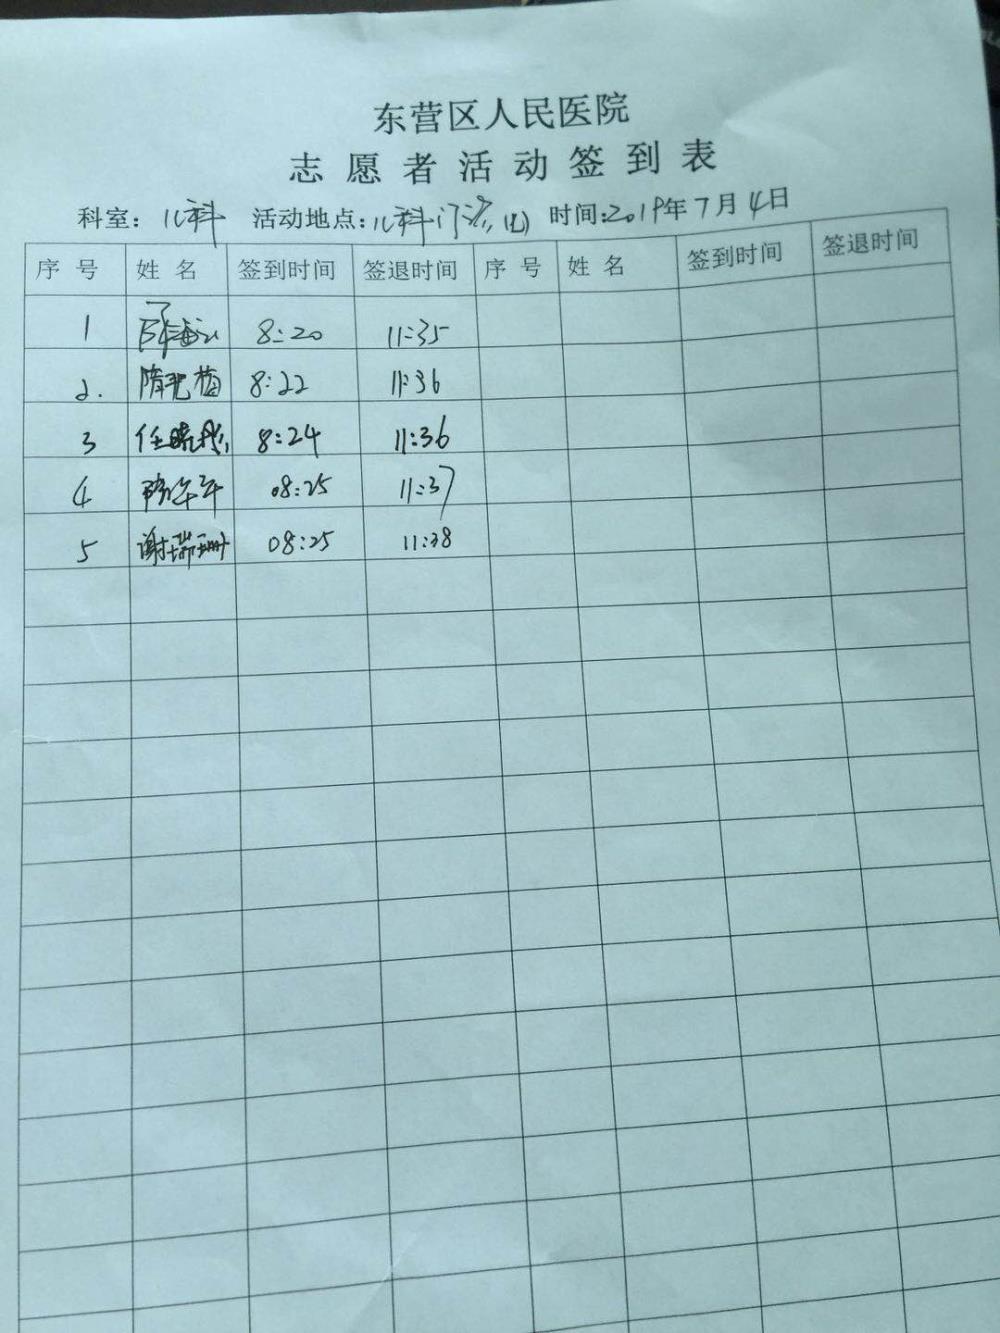 东营区人民医院
志愿者活动签到表
科室：儿科 活动地点：儿科门诊 时间：2019年7月4日
序号 姓名 签到时间 签退时间 序号 姓名 签到时间 签退时间
1 8:20 11:35
2. 8:22 11:36
3 任晓彤 8:24 11:36
4 08:25 11:37
5 谢瑞珊 08:25 11:38